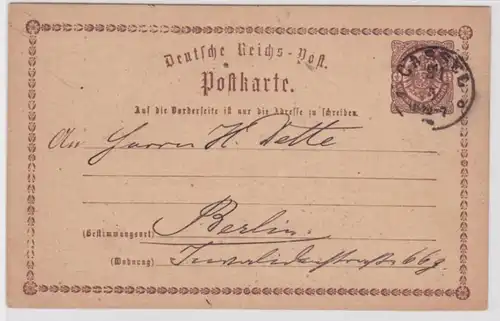 Deutsche Reichs-Post.
Postkarte.
CASSEL
Auf die Vorderseite ist nur die Adresse zu schreiben.
An Herrn H. Dette
(Bestimmungsort) Berlin.
(Wohnung) Invalidenstraße 66g.